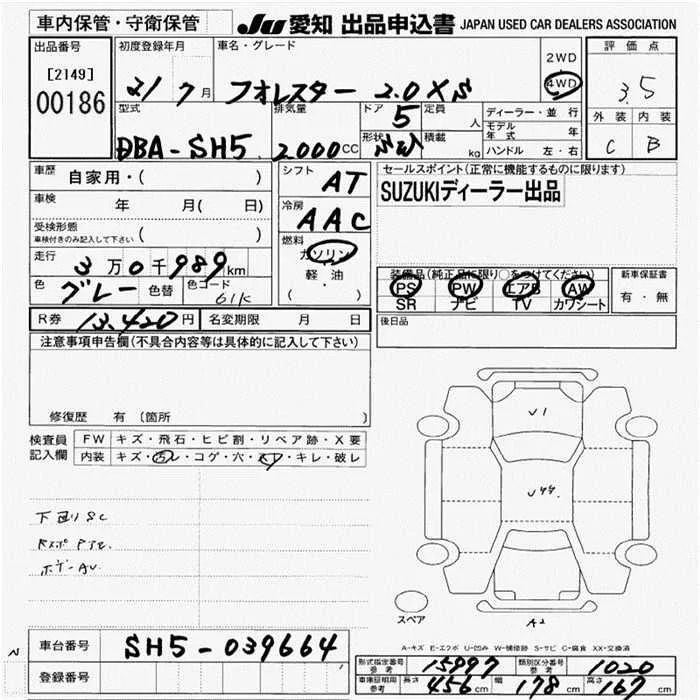 車内保管・守衛保管 JU 愛知 出品申込書 JAPAN USED CAR DEALERS ASSOCIATION
出品番号 初度登録年月 車名・グレード 2WD 評価点
[2149] 21 7月 フォレスター 2.0XS 4WD 3.5
00186 型式 排気量 ドア 5 定員 人 ディーラー・並行 外装 内装
モデル年式 年
DBA-SH5 2000CC 形状 積載 kg ハンドル 左・右 C B
車歴 自家用・( ) シフト AT セールスポイント(正常に機能するものに限ります)
車検 年 月( 日) 冷房 AAC SUZUKIディーラー出品
受検形態
車検付きのみ記入して下さい ( ) 燃料 ガソリン
走行 3万0千989km 軽・油 装備品(純正品に限り○をつけてください) 新車保証書
色 グレー 色替 色コード 61K ( ・ ) PS PW エアB AW 有・無
SR ナビ TV カワシート
R券 13,420円 名変期限 月 日 後日品
注意事項申告欄(不具合内容等は具体的に記入して下さい)
修復歴 有(箇所 )
検査員 FW キズ・飛石・ヒビ割・リペア跡・X要
記入欄 内装 キズ・汚レ・コゲ・穴・スレ・キレ・破レ
U1
U44.
下廻りSC
ボデーAU.
スペア A2
A-キズ E-エクボ U-凹み W-補修跡 S-サビ C-腐食 XX-交換済
N 車台番号 SH5-039664 形式指定番号 参考 15997 類別区分番号 参考 1020
登録番号 車庫証明用 参考 長さ 456cm 幅 178cm 高さ 167cm